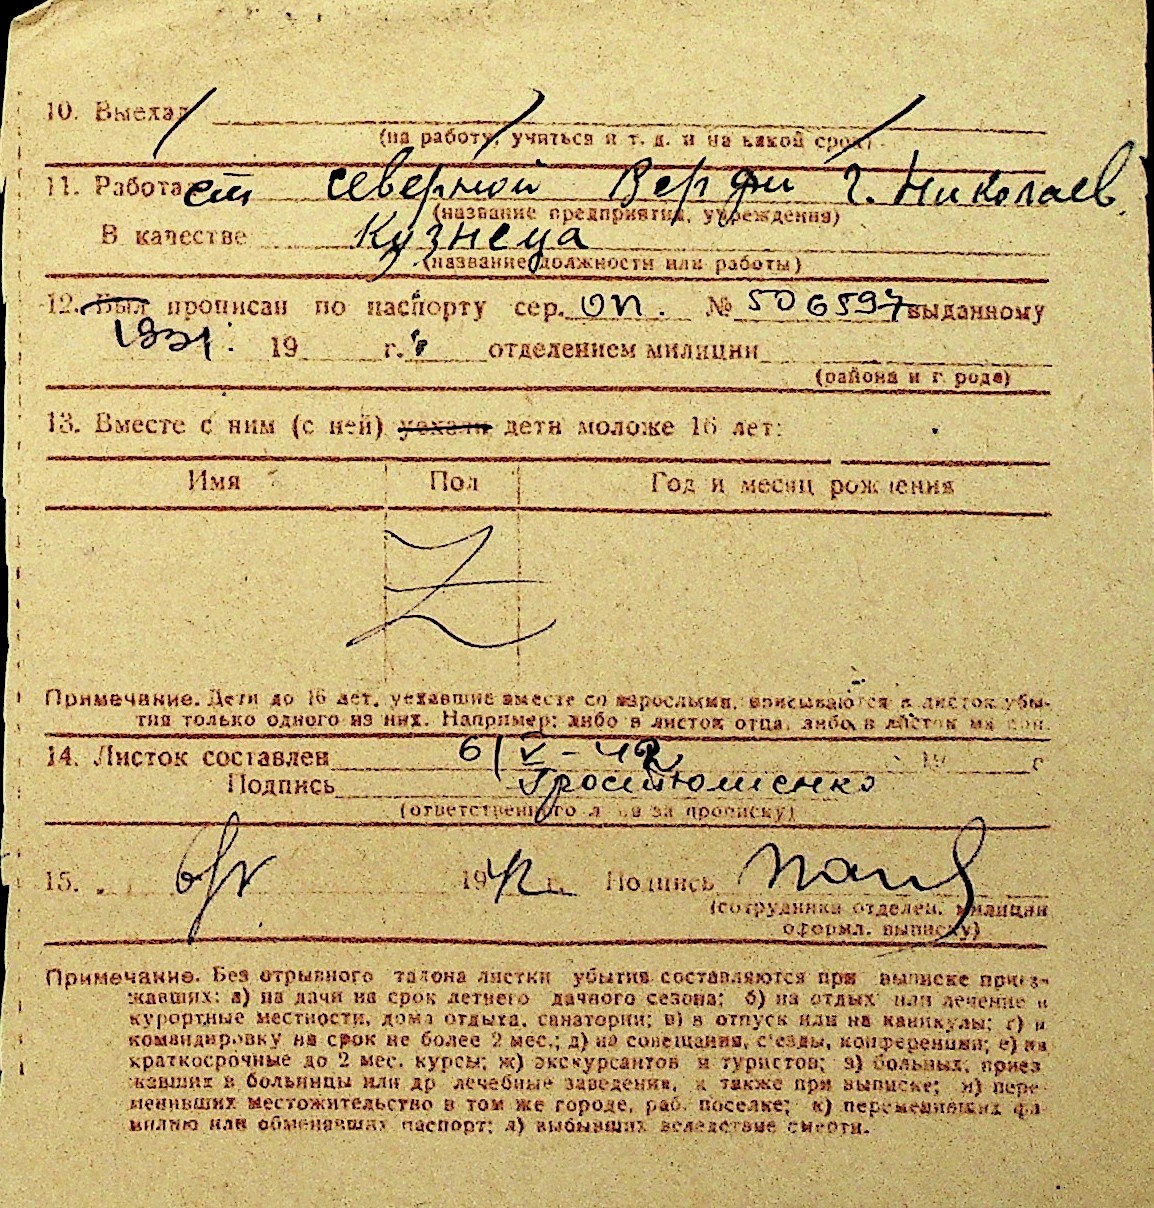 10. Выехал
(на работу, учиться и т. д. и на какой срок)
11. Работает северной Верфи г. Николаев
(название предприятия, учреждения)
В качестве Кузнеца
(название должности или работы)
12. Был прописан по паспорту сер. № 506597 выданному
19 г. отделением милиции
(района и города)
13. Вместе с ним (с ней) уехали дети моложе 16 лет:
Имя Пол Год и месяц рождения
Z
Примечание. Дети до 16 лет, уехавшие вместе со взрослыми, вписываются в листок убы-
тия только одного из них. Например: либо в листок отца, либо в листок матери.
14. Листок составлен 6/V-42 19 г
Подпись
(ответственного лица за прописку)
15. 1942 г. Подпись
(сотрудника отделен. милиции
оформл. выписку)
Примечание. Без отрывного талона листки убытия составляются при выписке приез-
жавших: а) на дачи на срок летнего дачного сезона; б) на отдых или лечение в
курортные местности, дома отдыха, санатории; в) в отпуск или на каникулы; г) в
командировку на срок не более 2 мес.; д) на совещания, съезды, конференции; е) на
краткосрочные до 2 мес. курсы; ж) экскурсантов и туристов; з) больных, приез
жавших в больницы или др лечебные заведения, а также при выписке; и) пере-
менивших местожительство в том же городе, раб. поселке; к) переменивших фа-
милию или обменявших паспорт; л) выбывших вследствие смерти.